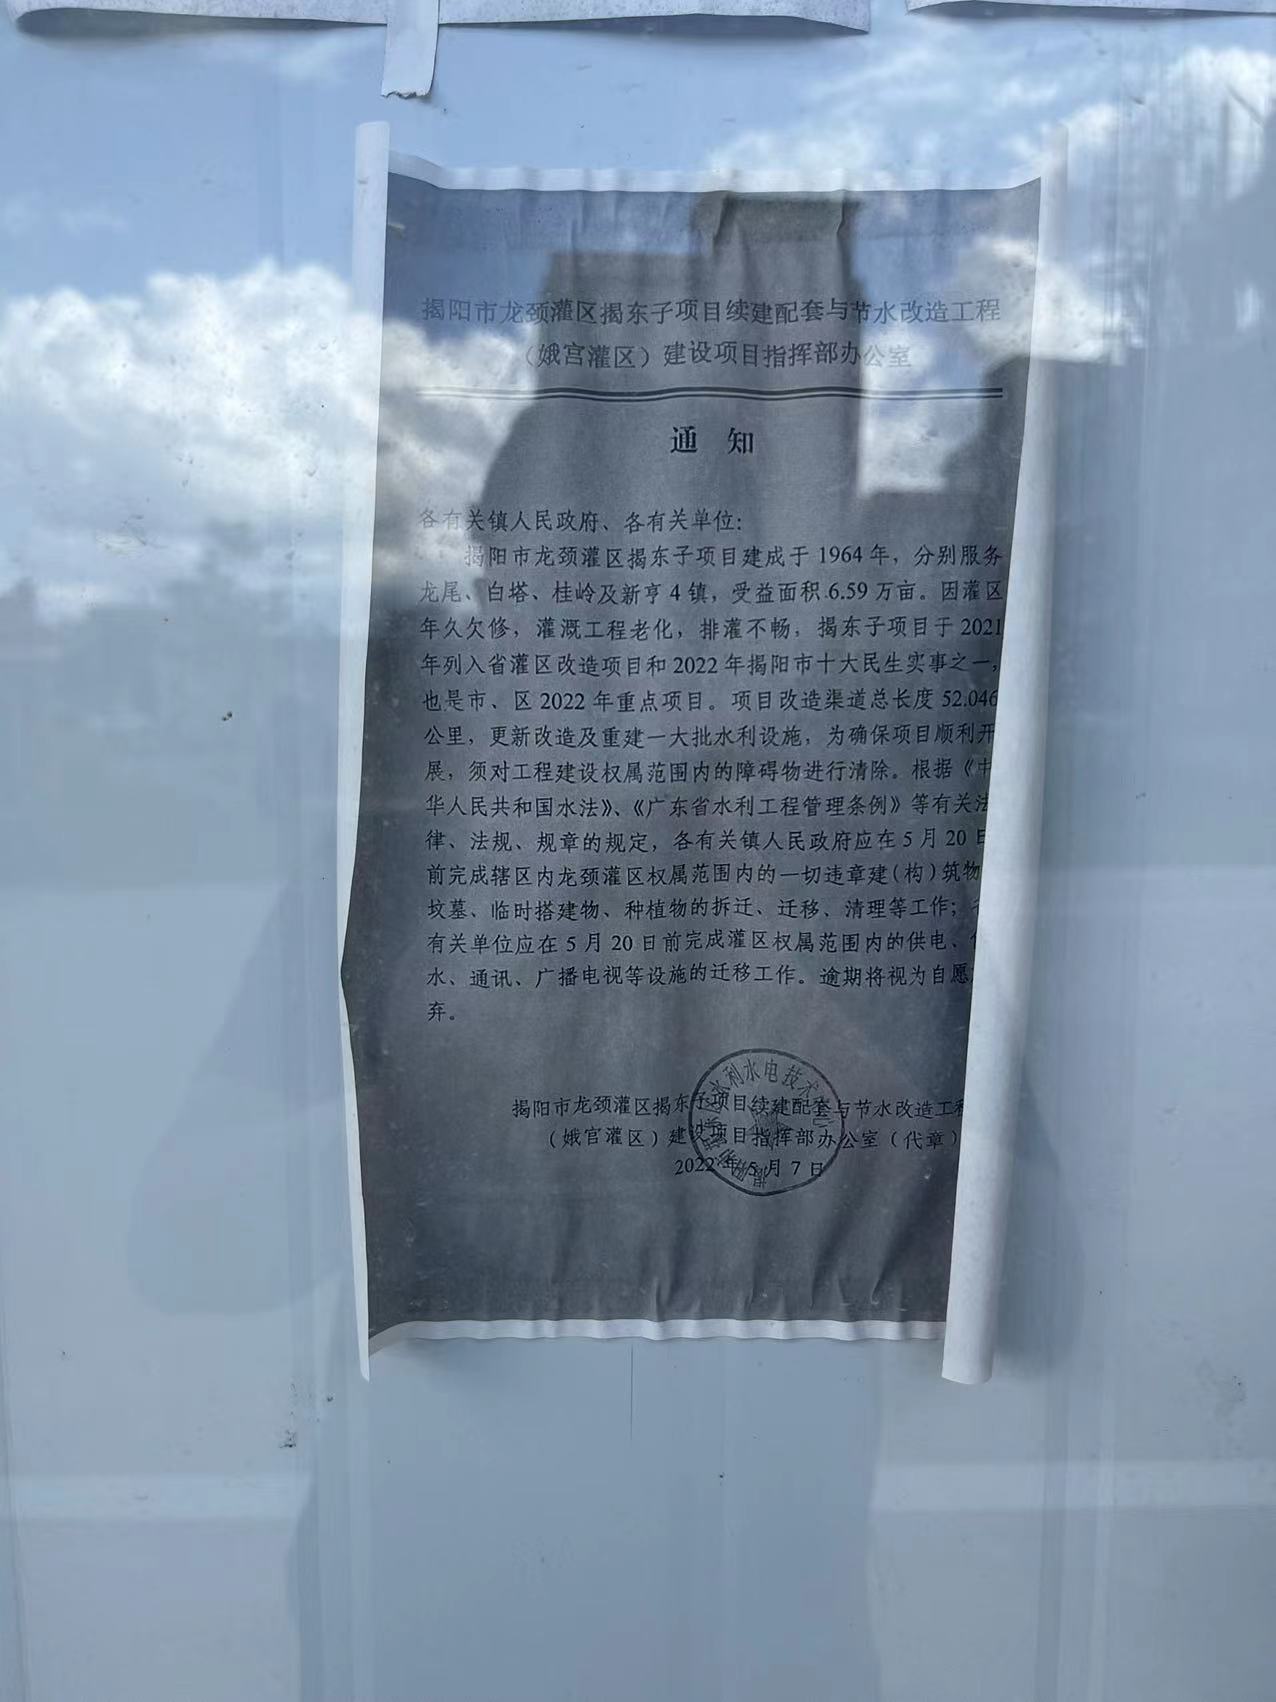 揭阳市龙颈灌区揭东子项目续建配套与节水改造工程
（娥宫灌区）建设项目指挥部办公室
通 知
各有关镇人民政府、各有关单位：
揭阳市龙颈灌区揭东子项目建成于 1964 年，分别服务
龙尾、白塔、桂岭及新亨 4 镇，受益面积 6.59 万亩。因灌区
年久欠修，灌溉工程老化，排灌不畅，揭东子项目于 2021
年列入省灌区改造项目和 2022 年揭阳市十大民生实事之一，
也是市、区 2022 年重点项目。项目改造渠道总长度 52.046
公里，更新改造及重建一大批水利设施，为确保项目顺利开
展，须对工程建设权属范围内的障碍物进行清除。根据《中
华人民共和国水法》、《广东省水利工程管理条例》等有关法
律、法规、规章的规定，各有关镇人民政府应在 5 月 20 日
前完成辖区内龙颈灌区权属范围内的一切违章建（构）筑物
坟墓、临时搭建物、种植物的拆迁、迁移、清理等工作；
有关单位应在 5 月 20 日前完成灌区权属范围内的供电、
水、通讯、广播电视等设施的迁移工作。逾期将视为自愿
弃。
揭阳市龙颈灌区揭东子项目续建配套与节水改造工程
（娥官灌区）建设项目指挥部办公室（代章）
2022 年 5 月 7 日
水利水电技术